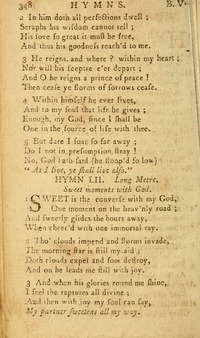 348 HYMNS. B. V.
2 In him doth all perfections dwell ;
Seraphs his wisdom cannot tell ;
His love so great it must be free,
And thus his goodness reach'd to me.
3 He reigns, and where ? within my heart ;
Nor will his sceptre e'er depart ;
And O he reigns a prince of peace !
Then cease ye storms of sorrows cease.
4 Within himself he ever lives,
And to my soul that life he gives ;
Enough, my God, since I shall be
One in the source of life with thee.
5 But dare I soar so far away ;
Do I not in presumption stray !
No, God hath said (he stoop'd so low)
" As I live, ye shall live also."
HYMN LII. Long Metre.
Sweet moments with God.
1 SWEET is the converse with my God,
One moment on the heav'nly road ;
And sweetly glides the hours away,
When cheer'd with one immortal ray.
2 Tho' clouds impend and storms invade,
The morning star is still my aid ;
Doth clouds expel and foes destroy,
And on he leads me still with joy.
3 And when his glories round me shine,
I feel the raptures all divine ;
And then with joy my soul can say,
My partner sweetens all my way.